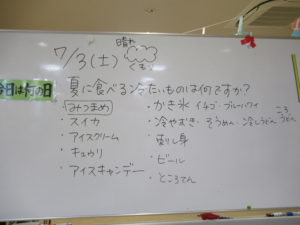 晴れ
7/3(土) くもり
今日は何の日
夏に食べる冷たいものは何ですか?
みつまめ
・スイカ
・アイスクリーム
・キュウリ
・アイスキャンデー
・かき氷 イチゴ・ブルーハワイ
・冷やむぎ・そうめん・冷しうどん ころうどん
・刺し身
・ビール
・ところてん